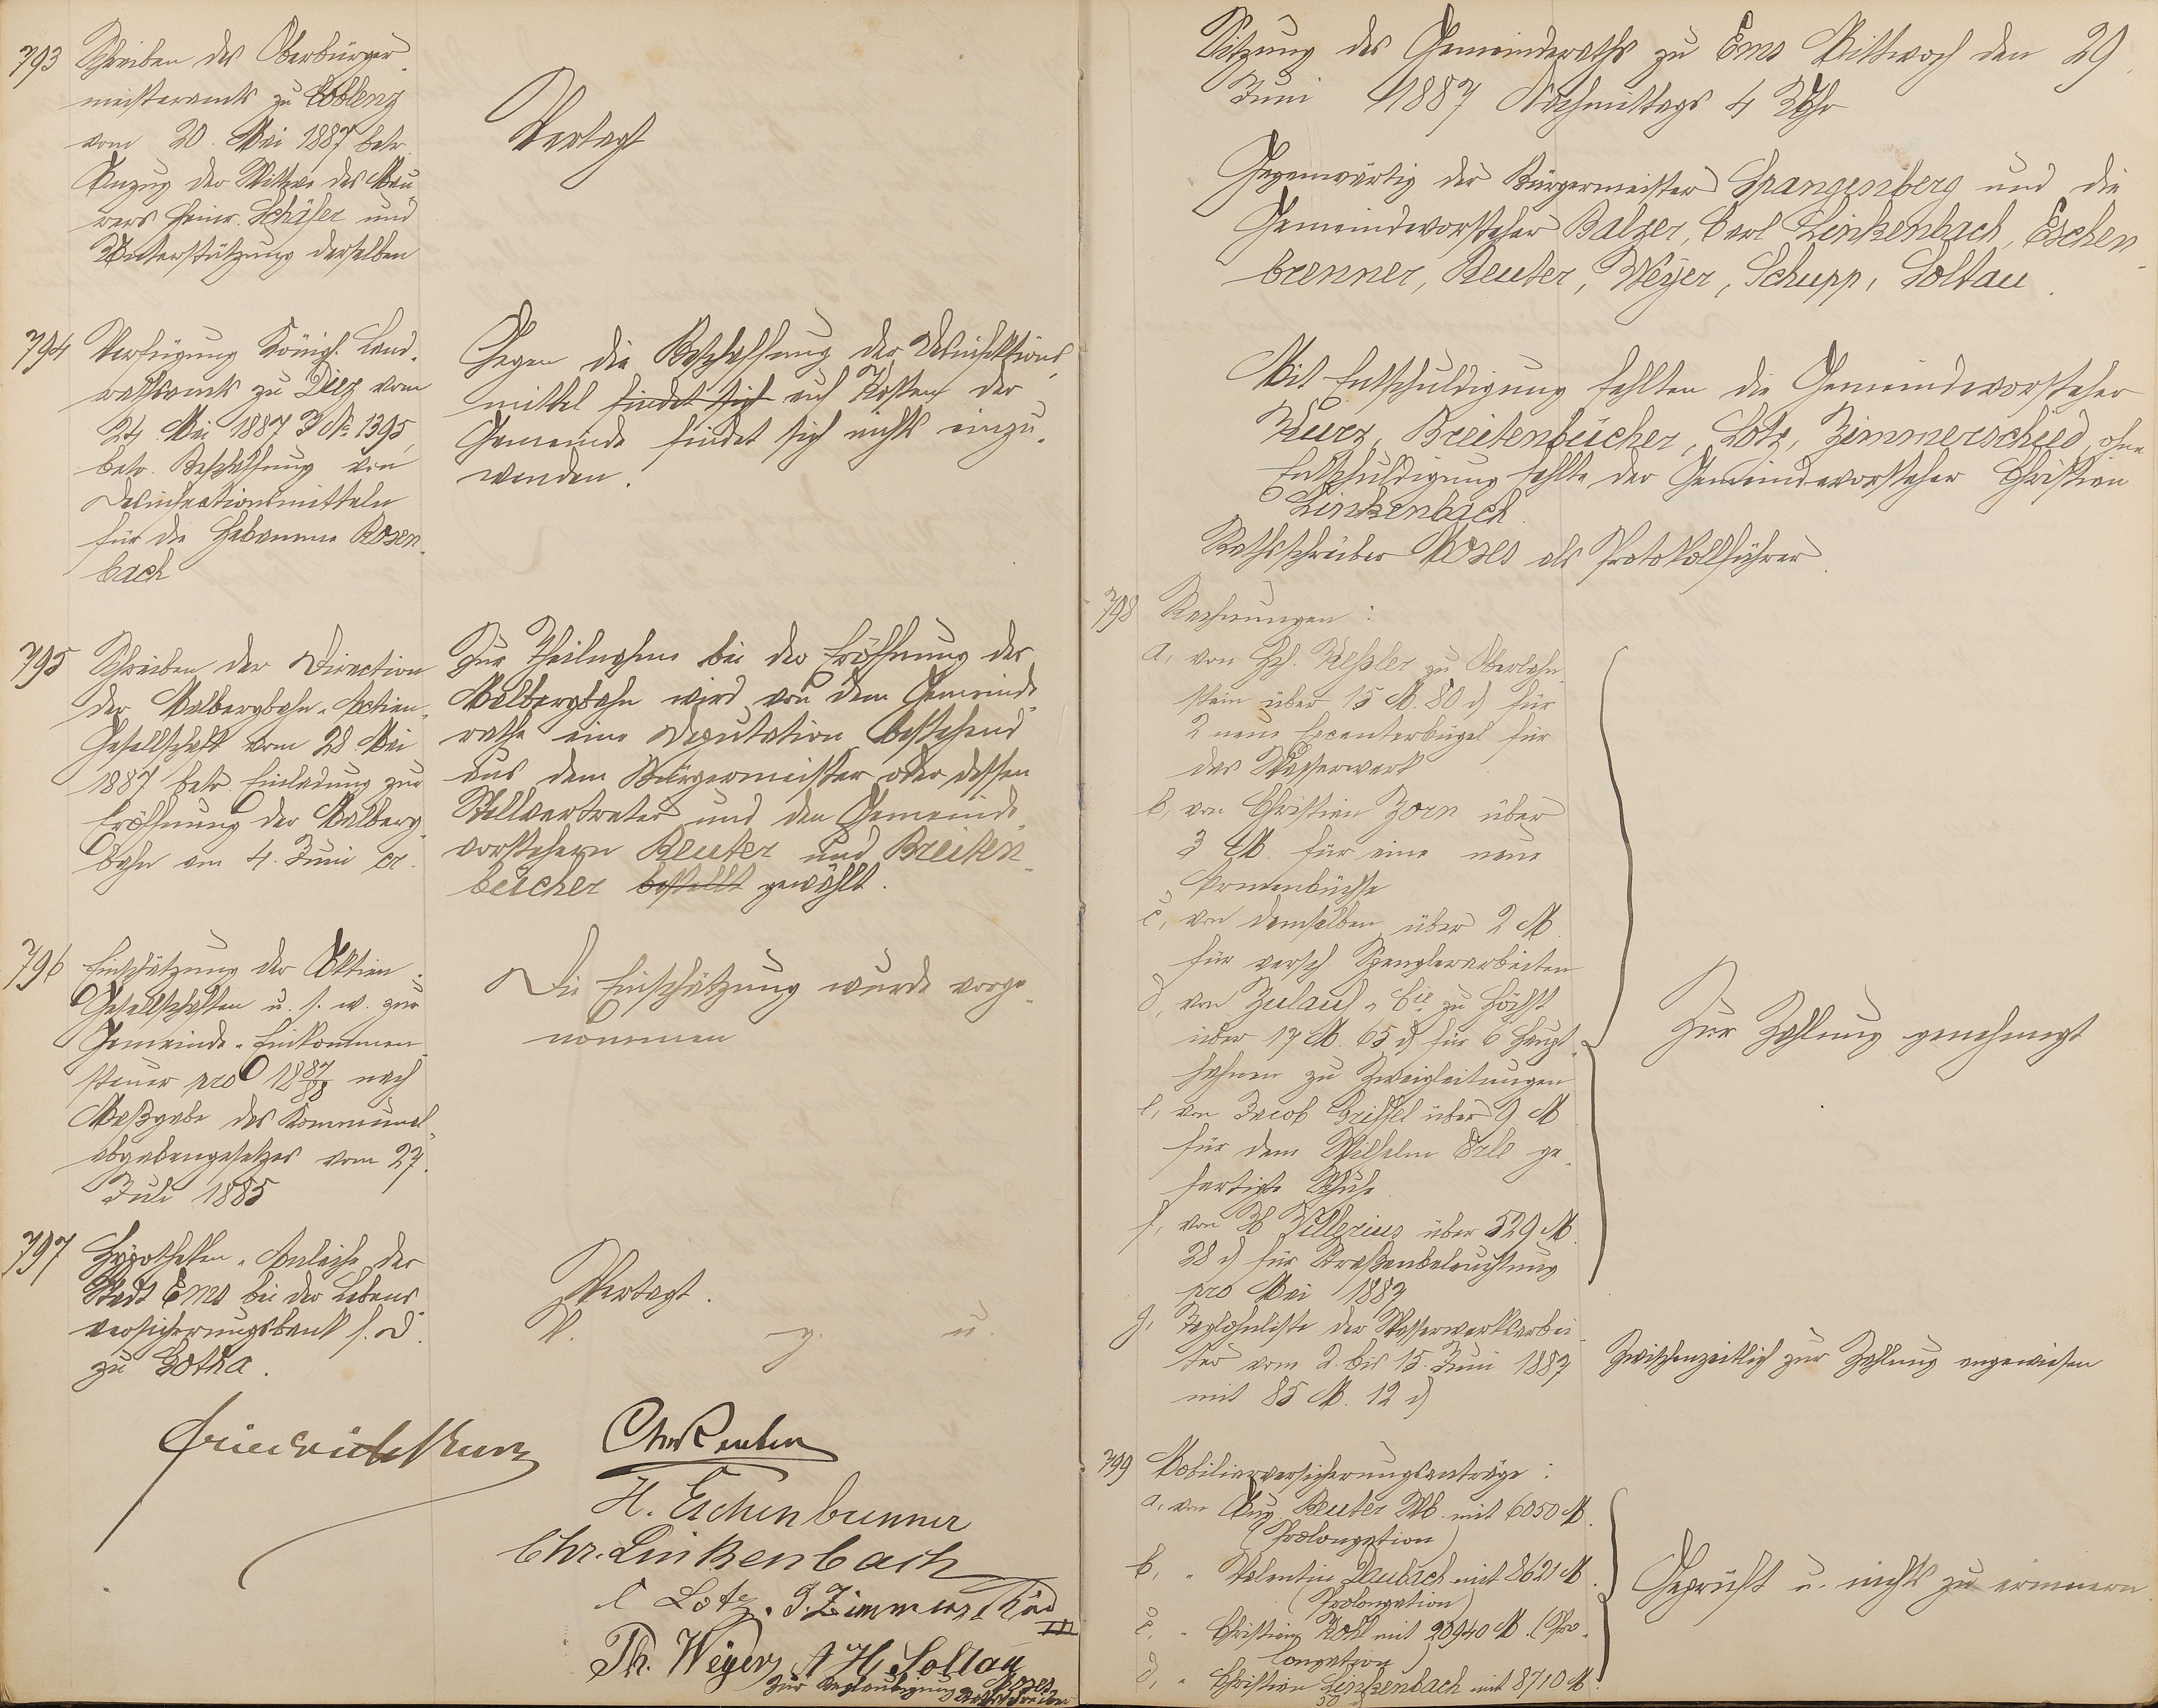 793 Schreiben des Oberbürger-
meisteramts zu Coblenz
vom 20. Mai 1887 betr.
Anzug der Wittwe des Mau-
rers Heinr. Schäfer und
Unterstützung derselben
Vertagt
794 Verfügung Königl. Land-
rathsamts zu Diez vom
24. Mai 1887 J. No. 1395,
betr. Beschaffung von
Desinfectionsmitteln
für die Hebamme Rosen-
bach
Gegen die Beschaffung der Desinfektions-
mittel findet sich auf Kosten der
Gemeinde findet sich nichts einzu-
wenden.
795 Schreiben der Direction
der Malbergbahn-Actien-
Gesellschaft vom 28. Mai
1887 betr. Einladung zur
Eröffnung der Malberg-
bahn am 4. Juni cr.
Zur Theilnahme bei der Eröffnung der
Malbergbahn wird von dem Gemeinde-
rathe eine Deputation bestehend
aus dem Bürgermeister oder dessen
Stellvertreter und den Gemeinde-
vorstehern Reuter und Breiten-
bücher bestellt gewählt.
796 Einschätzung der Aktien-
Gesellschaften u. s. w. zur
Gemeinde-Einkommen-
steuer pro 1887/88 nach
Maßgabe des Kommunal-
abgabengesetzes vom 27.
Juli 1885
Die Einschätzung wurde vorge-
nommen
797 Hypotheken-Anleihe der
Stadt Ems bei der Lebens-
versicherungsbank f. D.
zu Gotha.
Vertagt.
V. g. u.
Friedrich Kurz
Chr Reuter
H. Eschenbrenner
Chr. Linkenbach
C Lotz. J. Zimmerschied III
Th. Weyer A H. Soltau
Zur Beglaubigung Moses
Rathschreiber
Sitzung des Gemeinderaths zu Ems Mittwoch den 29.
Juni 1887 Nachmittags 4 Uhr
Gegenwärtig der Bürgermeister Spangenberg und die
Gemeindevorsteher Balzer, Carl Linkenbach, Eschen-
brenner, Reuter, Weyer, Schupp, Soltau.
Mit Entschuldigung fehlten die Gemeindevorsteher
Kurz, Breitenbücher, Lotz, Zimmerschied, ohne
Entschuldigung fehlte der Gemeindevorsteher Christian
Linkenbach.
Rathsschreiber Moses als Protokollführer.
798 Rechnungen:
a, von Hch. Keßler zu Oberlahn-
stein über 15 M. 80 d für
2 neue Excenterbügel für
das Wasserwerk
b, von Christian Zorn über
3 M. für eine neue
Armenbüchse
c, von demselben über 2 M.
für versch Spenglerarbeiten
d, von Zulauf & Cie zu Höchst
über 17 M. 65 d für 6 Haupt-
hahnen zu Zweigleitungen
e, von Jacob Griffel über 9 M
für dem Wilhelm Erle ge-
fertigte Schuhe
f, von H Villerius über 529 M.
28 d für Straßenbeleuchtung
pro Mai 1887
Zur Zahlung genehmigt
g, Taglohnliste der Wasserwerksarbei-
ter vom 2. bis 15. Juni 1887
mit 85 M. 12 d
Zwischenzeitlich zur Zahlung angewiesen
799 Mobiliarversicherungsanträge:
a, von Aug. Reuter Wb. mit 6050 M.
(Prolongation)
b, " Valentin Daubach mit 8621 M
(Prolongation)
c, " Christian Kohl mit 20940 M. (Pro-
longation)
d, " Christian Linkenbach mit 8710 M.
50 d
Geprüft u. nichts zu erinnern